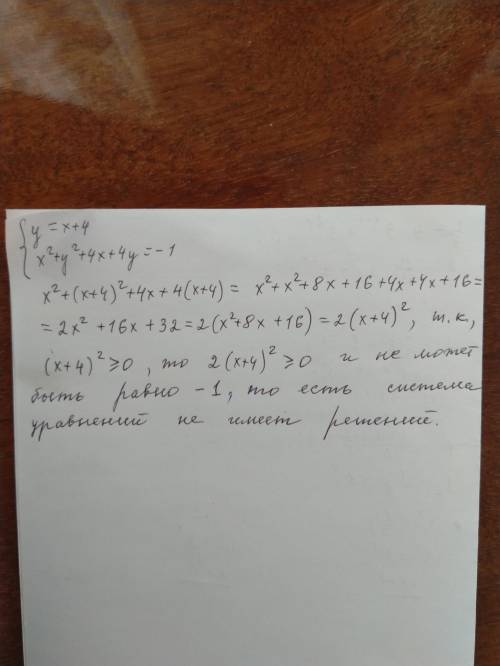 {y = x+4
x²+y²+4x+4y = -1
x²+(x+4)²+4x+4(x+4) = x²+x²+8x+16+4x+4x+16=
= 2x²+16x+32 = 2(x²+8x+16) = 2(x+4)², т.к,
(x+4)² ⩾ 0, то 2(x+4)² ⩾ 0 и не может
быть равно -1, то есть система
уравнений не имеет решений.